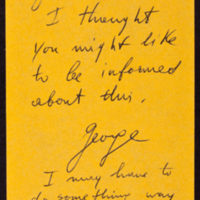 I thought
you might like
to be informed
about this.
George
I may have to
do something way